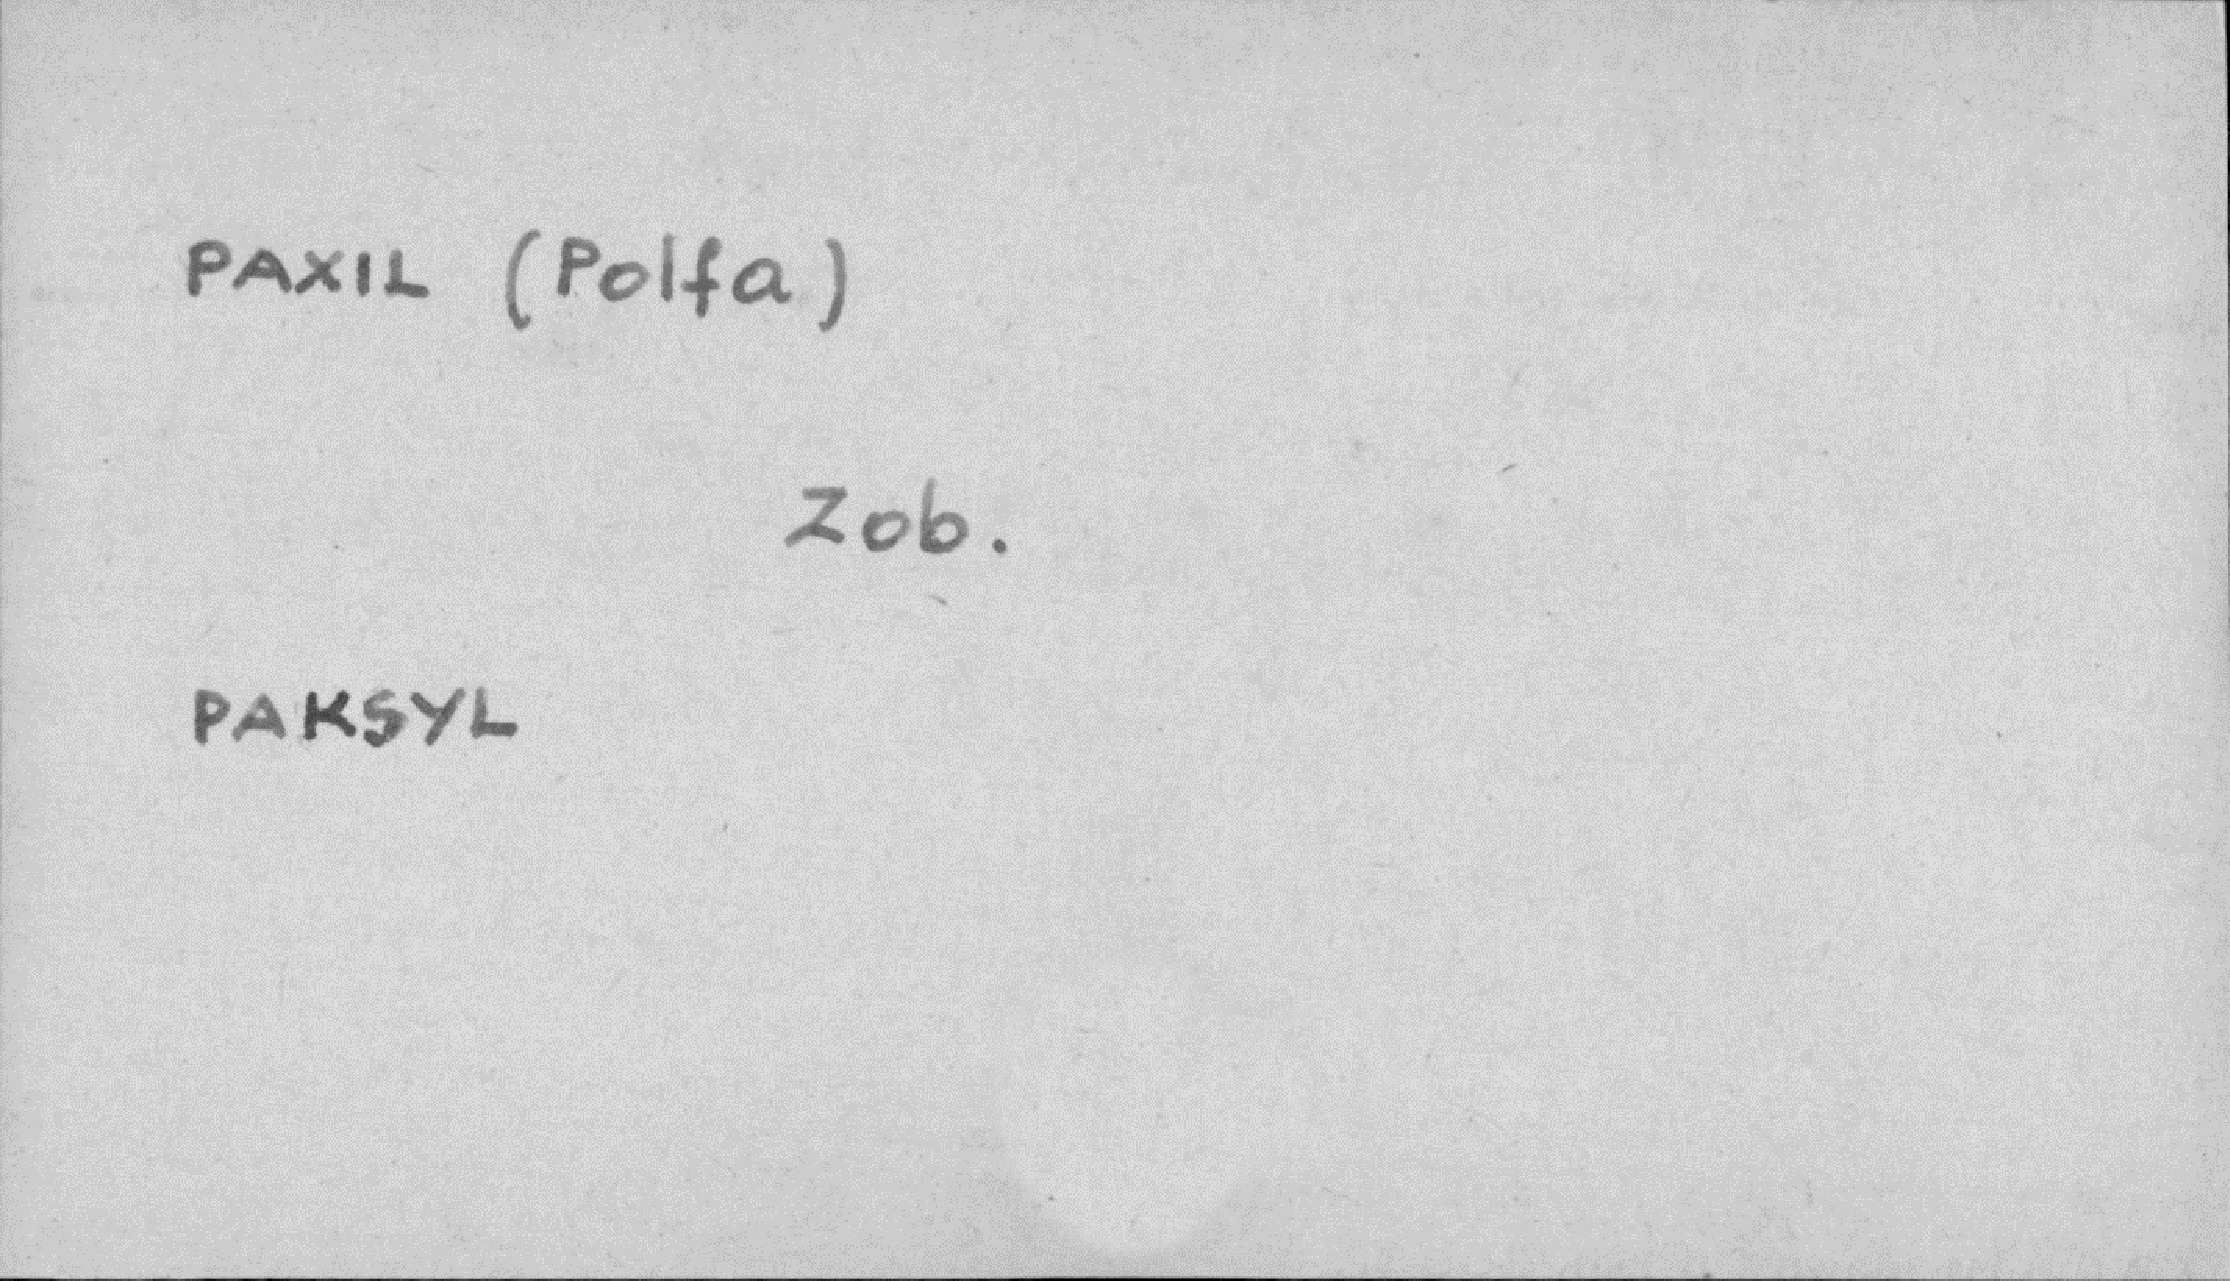 PAXIL (Polfa)
Zob.
PAKSYL